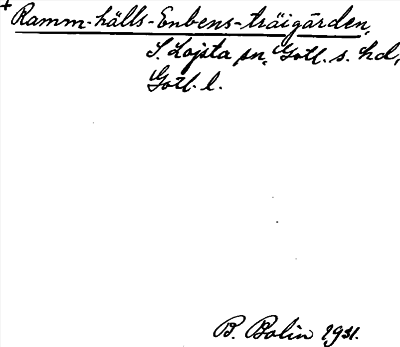 + Ramm-hälls-Enbens-träigården,
S. Lojsta sn, Gotl. s. hd,
Gotl. l.
B. Bolin 1931.